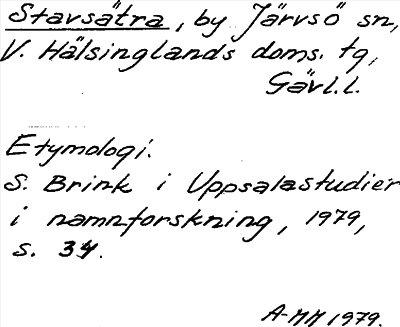 Stavsätra, by Järvsö sn,
V. Hälsinglands doms. tg,
Gävl.l.
Etymologi.
S. Brink i Uppsalastudier
i namnforskning, 1979,
s. 34.
A-MM 1979.